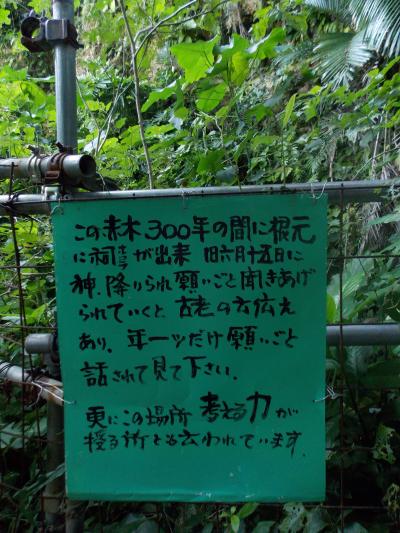 この赤木300年の間に根元
に祠ホコラが出来 旧六月十五日に
神.降りられ願いごと聞きあげ
られていくと 古老の云伝え
あり、年一ツだけ願いごと
話されて見て下さい.
更にこの場所 考える力が
授る所とも云われています.